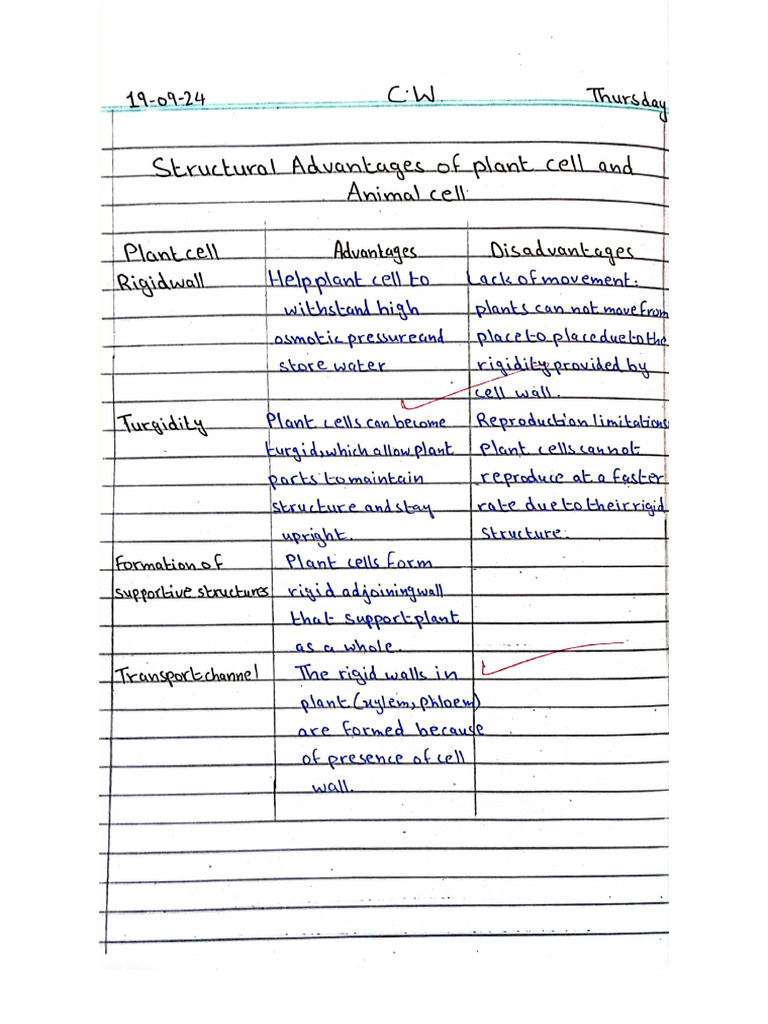 19-09-24 C.W Thursday
Structural Advantages of plant cell and
Animal cell
Plant cell Advantages Disadvantages
Rigid wall Help plant cell to Lack of movement:
withstand high plants can not move from
osmotic pressure and place to place due to the
store water rigidity provided by
cell wall.
Turgidity Plant cells can become Reproduction limitations
turgid, which allow plant Plant cells cannot
parts to maintain reproduce at a faster
structure and stay rate due to their rigid
upright. structure.
Formation of Plant cells form
supportive structures rigid adjoining wall
that support plant
as a whole.
Transport channel The rigid walls in
plant (xylem, phloem)
are formed because
of presence of cell
wall.